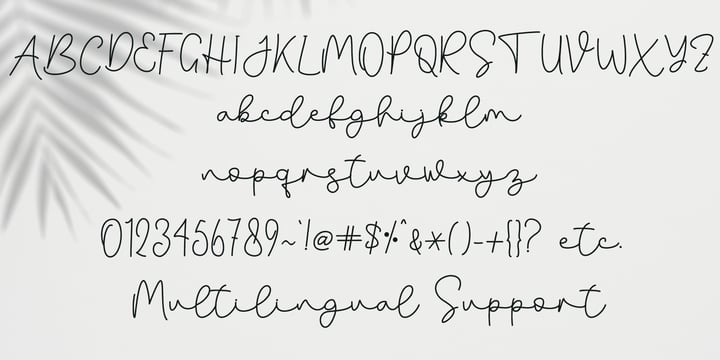 ABCDEFGHIJKLMOPQRSTUVWXYZ
abcdefghijklm
nopqrstuvwxyz
0123456789~`!@#$%^&*()-+{}? etc.
Multilingual Support